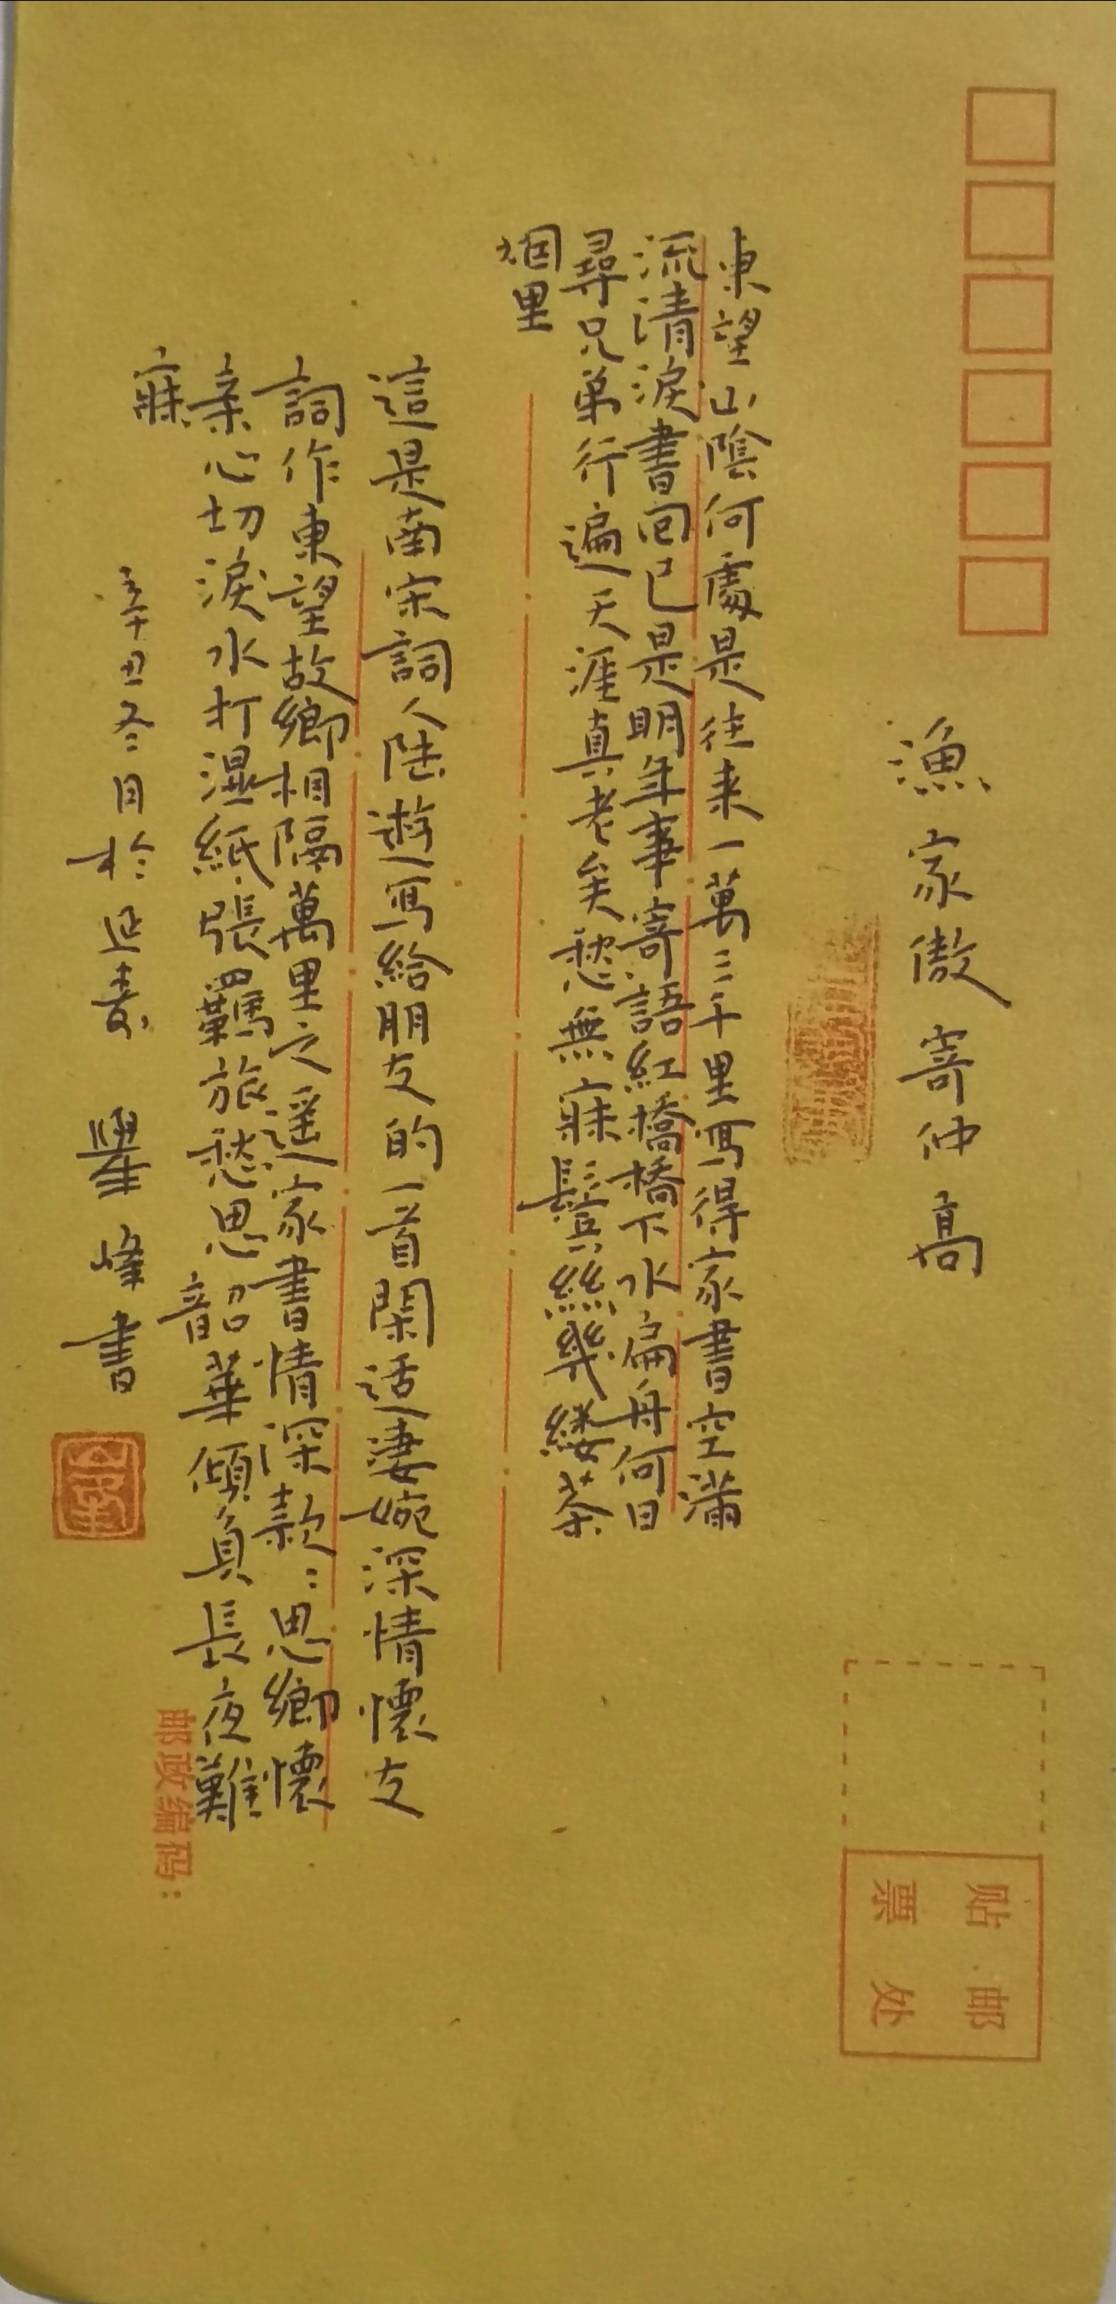 漁家傲寄仲高
東望山陰何處是往来一萬三千里寫得家書空滿
流清淚書回已是明年事寄語紅橋橋下水扁舟何日
尋兄弟行遍天涯真老矣愁無寐鬢絲幾縷茶
烟里
這是南宋詞人陸遊寫給朋友的一首閑适淒婉深情懷友
詞作東望故鄉相隔萬里之遥家書情深款:思鄉懷
亲心切淚水打濕紙張羈旅愁思韶華傾負長夜難
寐
辛丑冬月於延壽 峰書
贴邮
票处
邮政编码: